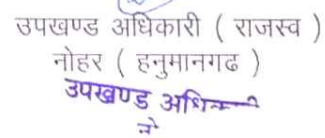 उपखण्ड अधिकारी ( राजस्व )
नोहर ( हनुमानगढ )
उपखण्ड अधिकारी
नो